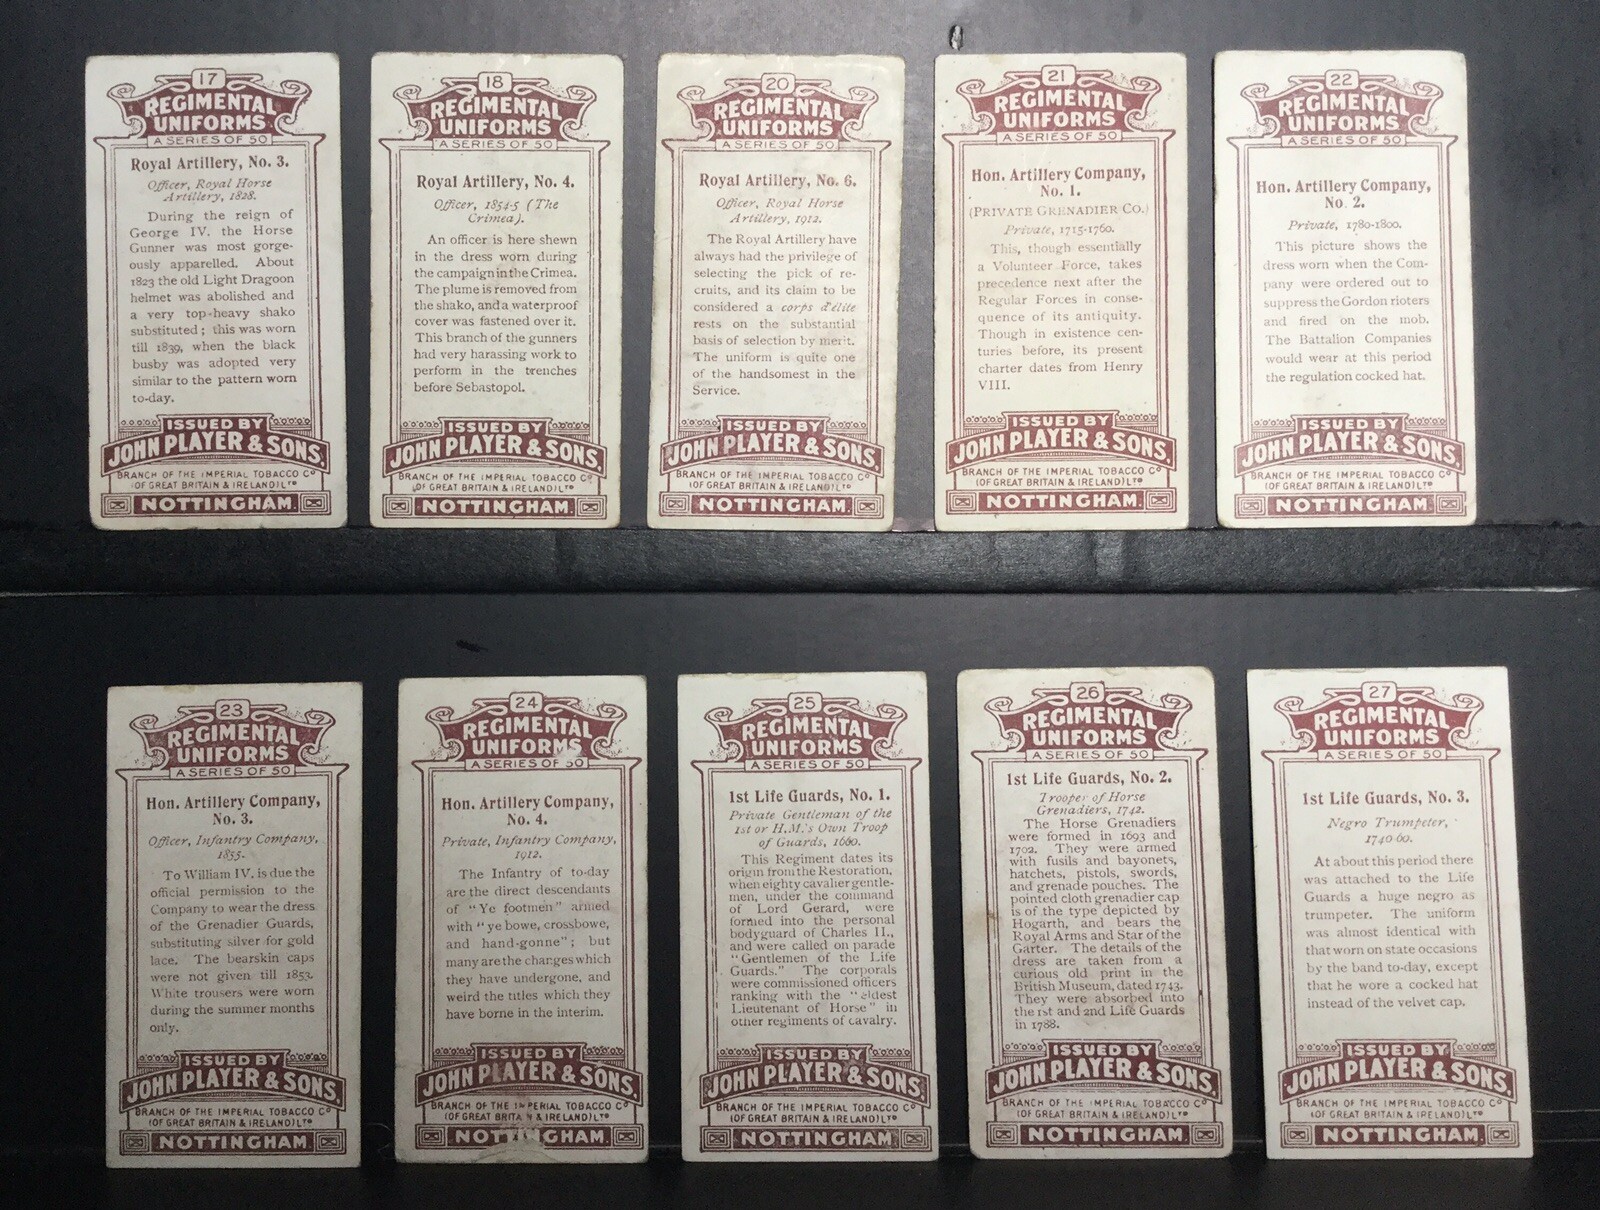 17
REGIMENTAL
UNIFORMS
A SERIES OF 50
Royal Artillery, No. 3.
Officer, Royal Horse
Artillery, 1828.
During the reign of
George IV. the Horse
Gunner was most gorge-
ously apparelled. About
1823 the old Light Dragoon
helmet was abolished and
a very top-heavy shako
substituted; this was worn
till 1839, when the black
busby was adopted very
similar to the pattern worn
to-day.
ISSUED BY
JOHN PLAYER & SONS,
BRANCH OF THE IMPERIAL TOBACCO Co
(OF GREAT BRITAIN & IRELAND) LTD
NOTTINGHAM.
18
REGIMENTAL
UNIFORMS
A SERIES OF 50
Royal Artillery, No. 4.
Officer, 1854-5 (The
Crimea).
An officer is here shewn
in the dress worn during
the campaign in the Crimea.
The plume is removed from
the shako, and a waterproof
cover was fastened over it.
This branch of the gunners
had very harassing work to
perform in the trenches
before Sebastopol.
ISSUED BY
JOHN PLAYER & SONS,
BRANCH OF THE IMPERIAL TOBACCO Co
(OF GREAT BRITAIN & IRELAND) LTD
NOTTINGHAM.
20
REGIMENTAL
UNIFORMS
A SERIES OF 50
Royal Artillery, No. 6.
Officer, Royal Horse
Artillery, 1912.
The Royal Artillery have
always had the privilege of
selecting the pick of re-
cruits, and its claim to be
considered a corps d'élite
rests on the substantial
basis of selection by merit.
The uniform is quite one
of the handsomest in the
Service.
ISSUED BY
JOHN PLAYER & SONS,
BRANCH OF THE IMPERIAL TOBACCO Co
(OF GREAT BRITAIN & IRELAND) LTD
NOTTINGHAM.
21
REGIMENTAL
UNIFORMS
A SERIES OF 50
Hon. Artillery Company,
No. 1.
(PRIVATE GRENADIER CO.)
Private, 1715-1760.
This, though essentially
a Volunteer Force, takes
precedence next after the
Regular Forces in conse-
quence of its antiquity.
Though in existence cen-
turies before, its present
charter dates from Henry
VIII.
ISSUED BY
JOHN PLAYER & SONS,
BRANCH OF THE IMPERIAL TOBACCO Co
(OF GREAT BRITAIN & IRELAND) LTD
NOTTINGHAM.
22
REGIMENTAL
UNIFORMS
A SERIES OF 50
Hon. Artillery Company,
No. 2.
Private, 1780-1800.
This picture shows the
dress worn when the Com-
pany were ordered out to
suppress the Gordon rioters
and fired on the mob.
The Battalion Companies
would wear at this period
the regulation cocked hat.
ISSUED BY
JOHN PLAYER & SONS,
BRANCH OF THE IMPERIAL TOBACCO Co
(OF GREAT BRITAIN & IRELAND) LTD
NOTTINGHAM.
23
REGIMENTAL
UNIFORMS
A SERIES OF 50
Hon. Artillery Company,
No. 3.
Officer, Infantry Company,
1855.
To William IV. is due the
official permission to the
Company to wear the dress
of the Grenadier Guards,
substituting silver for gold
lace. The bearskin caps
were not given till 1853.
White trousers were worn
during the summer months
only.
ISSUED BY
JOHN PLAYER & SONS,
BRANCH OF THE IMPERIAL TOBACCO Co
(OF GREAT BRITAIN & IRELAND) LTD
NOTTINGHAM.
24
REGIMENTAL
UNIFORMS
A SERIES OF 50
Hon. Artillery Company,
No. 4.
Private, Infantry Company,
1912.
The Infantry of to-day
are the direct descendants
of "Ye footmen" armed
with "ye bowe, crossbowe,
and hand-gonne"; but
many are the changes which
they have undergone, and
weird the titles which they
have borne in the interim.
ISSUED BY
JOHN PLAYER & SONS,
BRANCH OF THE IMPERIAL TOBACCO Co
(OF GREAT BRITAIN & IRELAND) LTD
NOTTINGHAM.
25
REGIMENTAL
UNIFORMS
A SERIES OF 50
1st Life Guards, No. 1.
Private Gentleman of the
1st or H.M.'s Own Troop
of Guards, 1660.
This Regiment dates its
origin from the Restoration,
when eighty cavalier gentle-
men, under the command
of Lord Gerard, were
formed into the personal
bodyguard of Charles II.,
and were called on parade
"Gentlemen of the Life
Guards." The corporals
were commissioned officers
ranking with the "eldest
Lieutenant of Horse" in
other regiments of cavalry.
ISSUED BY
JOHN PLAYER & SONS,
BRANCH OF THE IMPERIAL TOBACCO Co
(OF GREAT BRITAIN & IRELAND) LTD
NOTTINGHAM.
26
REGIMENTAL
UNIFORMS
A SERIES OF 50
1st Life Guards, No. 2.
Trooper of Horse
Grenadiers, 1742.
The Horse Grenadiers
were formed in 1693 and
1702. They were armed
with fusils and bayonets,
hatchets, pistols, swords,
and grenade pouches. The
pointed cloth grenadier cap
is of the type depicted by
Hogarth, and bears the
Royal Arms and Star of the
Garter. The details of the
dress are taken from a
curious old print in the
British Museum, dated 1743.
They were absorbed into
the 1st and 2nd Life Guards
in 1788.
ISSUED BY
JOHN PLAYER & SONS,
BRANCH OF THE IMPERIAL TOBACCO Co
(OF GREAT BRITAIN & IRELAND) LTD
NOTTINGHAM.
27
REGIMENTAL
UNIFORMS
A SERIES OF 50
1st Life Guards, No. 3.
Negro Trumpeter,
1740-60.
At about this period there
was attached to the Life
Guards a huge negro as
trumpeter. The uniform
was almost identical with
that worn on state occasions
by the band to-day, except
that he wore a cocked hat
instead of the velvet cap.
ISSUED BY
JOHN PLAYER & SONS,
BRANCH OF THE IMPERIAL TOBACCO Co
(OF GREAT BRITAIN & IRELAND) LTD
NOTTINGHAM.